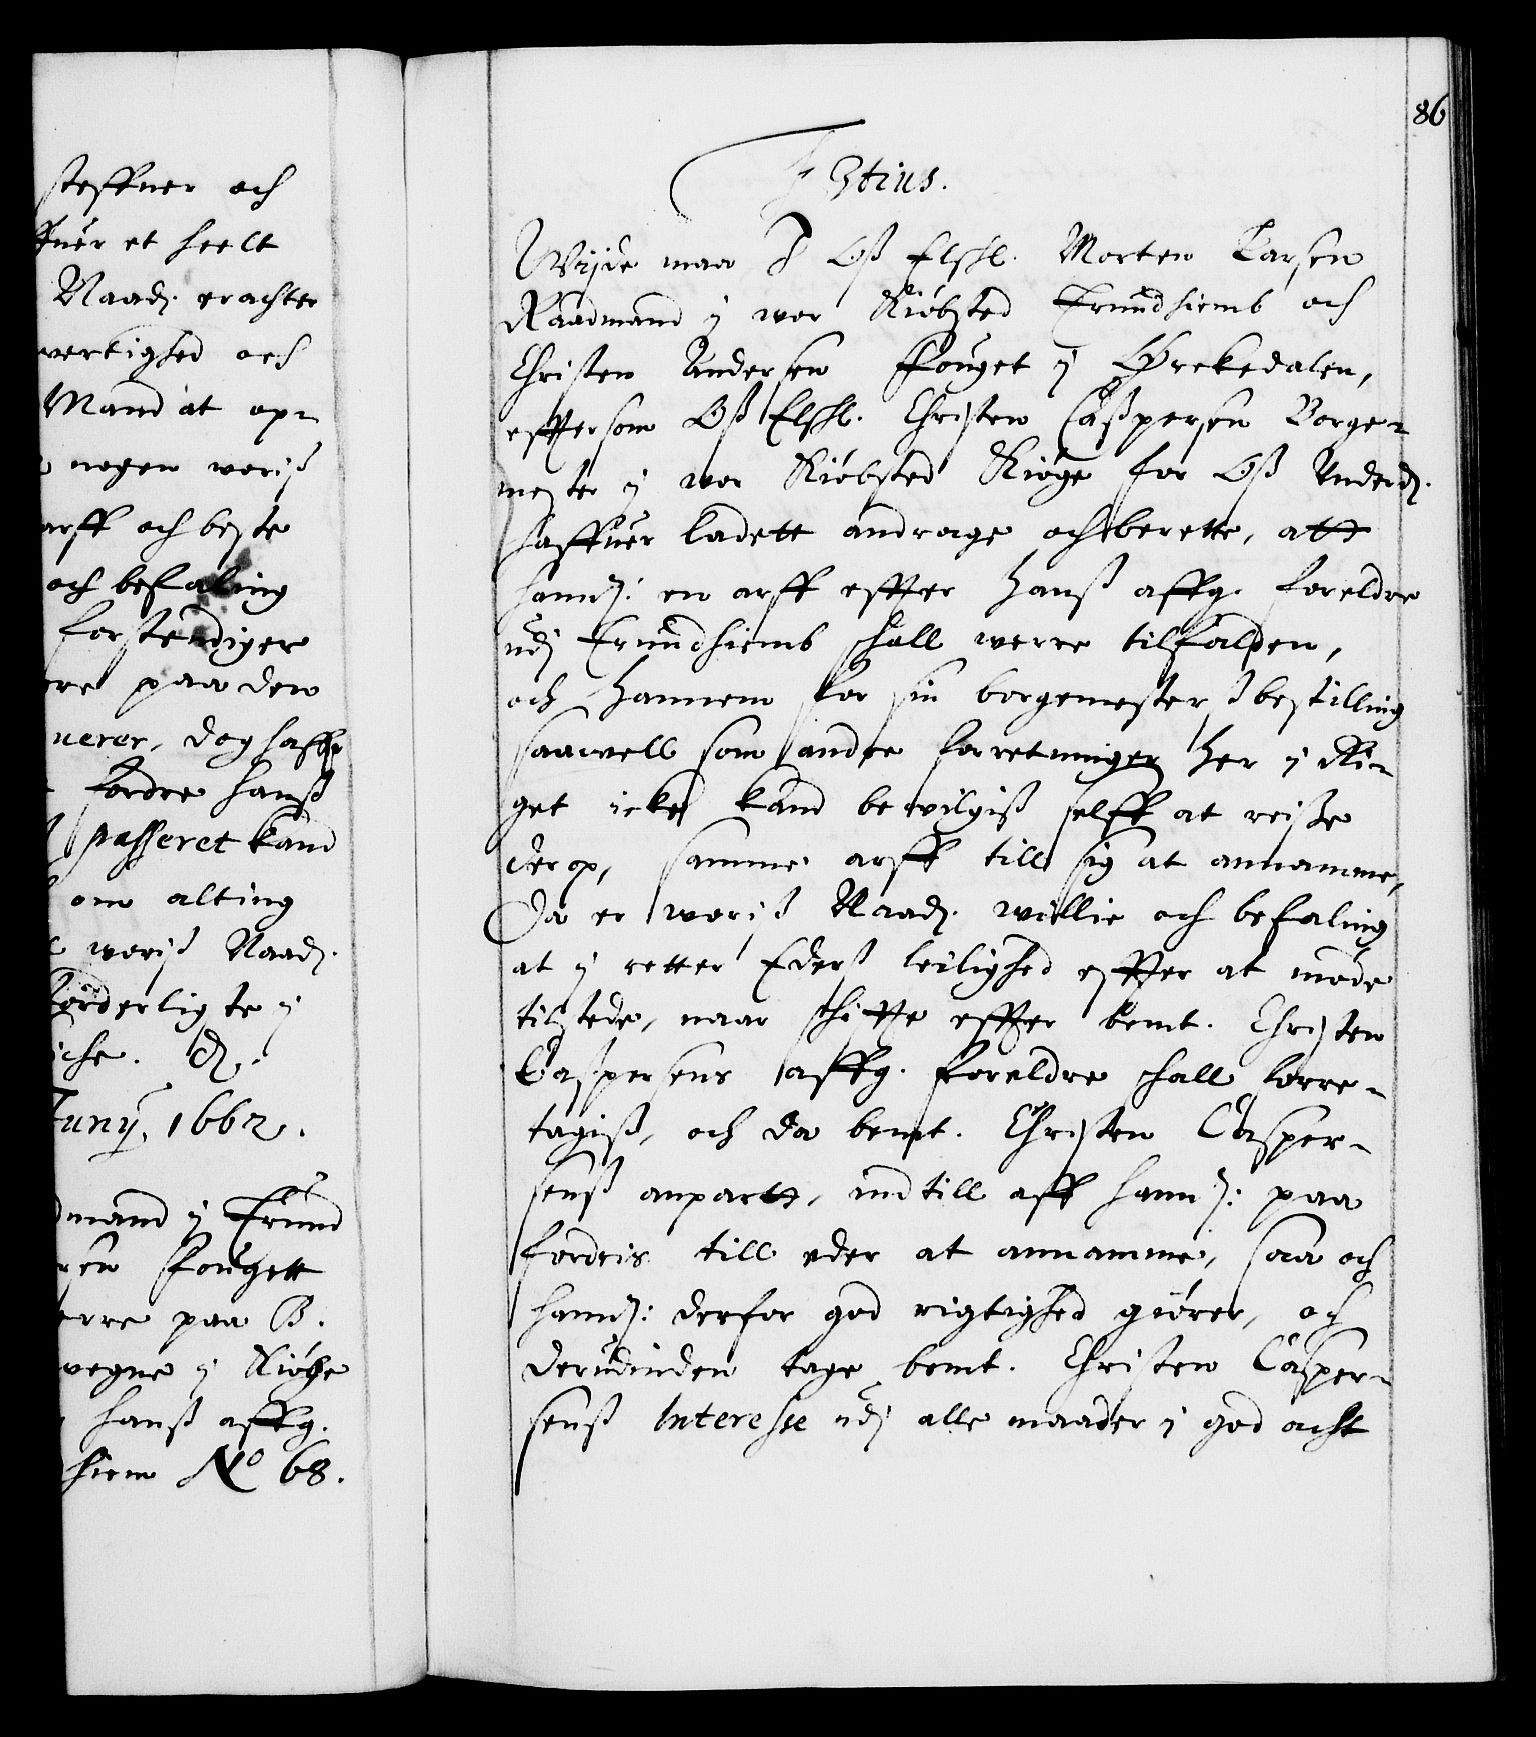 steffner och
ffuer et heelt
Naadj. erachter
wertighed och
Mand at op-
nogen woriß
arff och beste
och befaling
forstendiger
paa den
uerer, dog haffr
fordre hanß
passeret kand
om alting
woriß Naadj.
forderligste j
iche. &.
Junÿ. 1662.
dmand j Trund
sen Fougett
erre paa B.
wegne j Kiöge
hanß affg.
hiem No 68.
86
F 3tius.
Wijde maa J Oß Elschl. Morten Larsen
Raadmand j wor Kiöbsted Trundhiemb och
Christen Andersen Fouget j Orckedalen,
effterson Oß Elschl. Christen Caßpersen Borge-
mester j wor Kiöbsted Kiöge for Oß Underd.
haffuer ladett andrage och berette, att
hannd. en arff effter hanß affg. foreldre
udj Trundhiemb schall werre tilfalden,
och hannem for sin borgemesterß bestilling
saawell som andre forretninger her j Ri-
get icke kand bewilgiß selff at reise
derop, samme arff till sig at annamme,
Da er woriß Naadj. willie och befaling
at j retter Ederß leilighed effter at møde
tilstede, naar schiffte effter bemt. Christen
Caspersens affg. foreldre schall forre-
tagiß, och da bemt. Christen Casper-
senß anpartt, indtill aff hannd: paa
fordris till eder at annamme, saa och
hannd: derfor god rigtighed giører, och
derudinden tage bemt. Christen Casper-
senß Interesse udj alle maader j god acht